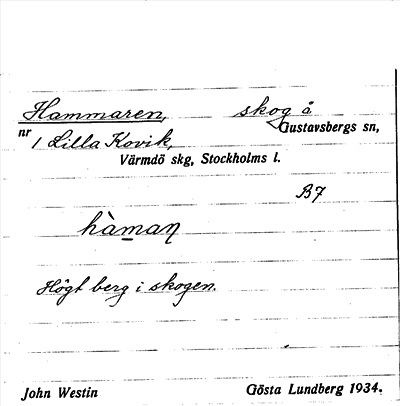 Hammaren, skog å
Gustavsbergs sn,
nr 1 Lilla Kovik,
Värmdö skg, Stockholms l.
B7
hàmaꞑ
Högt berg i skogen.
John Westin Gösta Lundberg 1934.